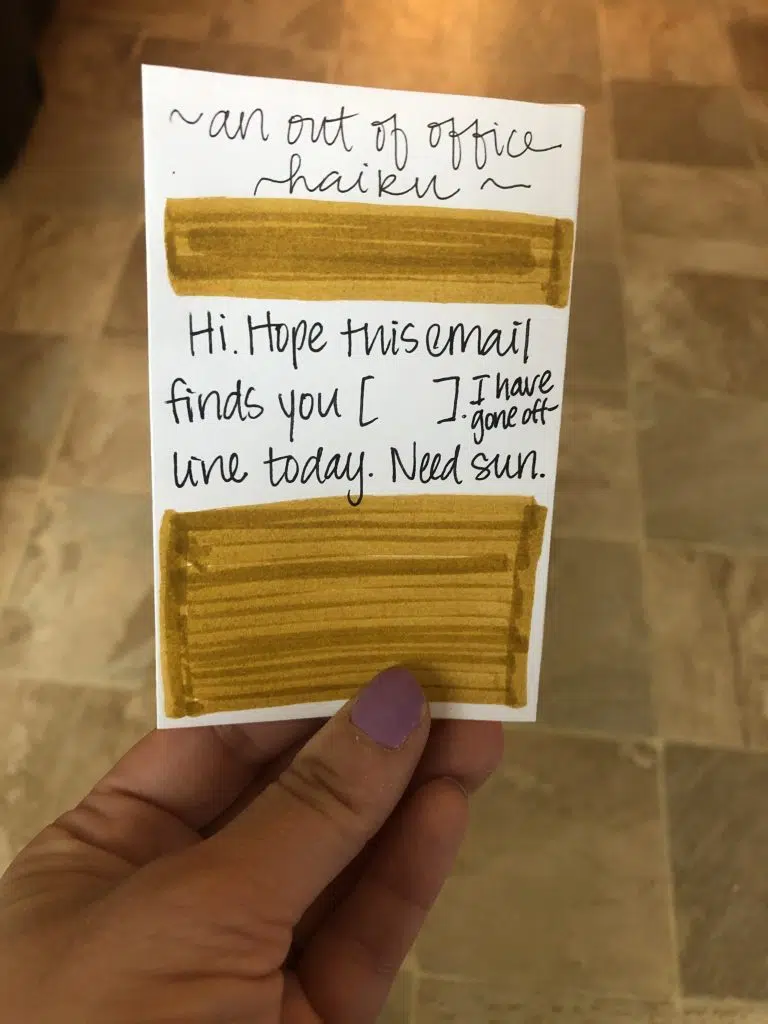 ~an out of office
~haiku~
Hi. Hope this email
finds you [ ]. I have
gone off-
line today. Need sun.